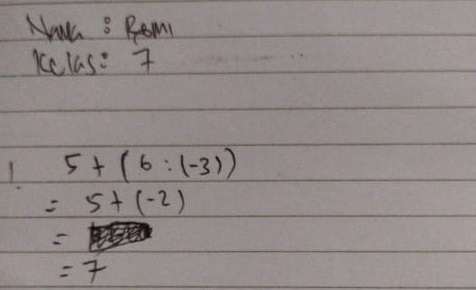 Nama : Romi
Kelas : 7
1 5 + (6 : (-3))
= 5 + (-2)
=
= 7